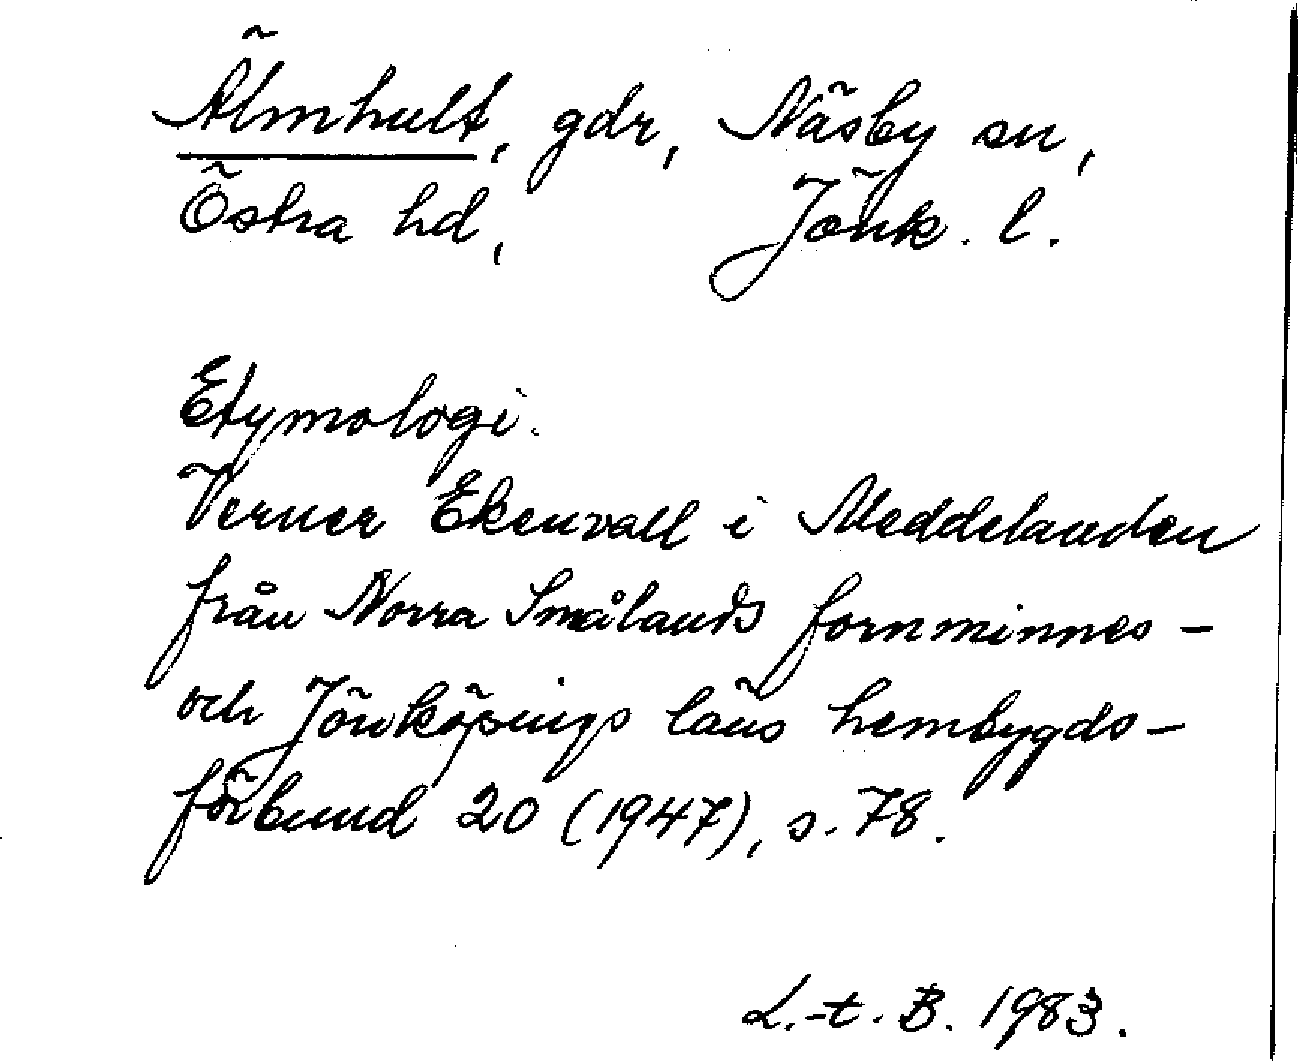 Älmhult, gdr, Näsby sn,
Östra hd, Jönk. l.
Etymologi.
Verner Ekenvall i Meddelanden
från Norra Smålands fornminnes-
och Jönköpings läns hembygds-
förbund 20 (1947), s. 78.
L.-t. B. 1983.